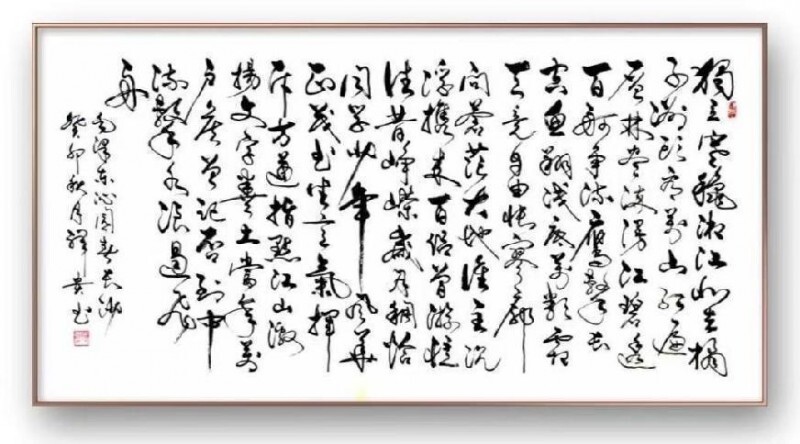 獨立寒穐湘江北去橘
子洲頭看萬山红遍
層林尽染漫江碧透
百舸争流鷹擊長
空魚翔浅底萬類霜
天竞自由悵寥廓
問蒼茫大地誰主沉
浮携来百侣曾游憶
往昔崢嶸歲月稠恰
同学少年風華
正茂书生意氣揮
斥方遒指點江山激
揚文字糞土當年萬
户侯曾記否到中
流擊水浪遏飛
舟
毛泽东沁園春長沙
癸卯秋月贵书